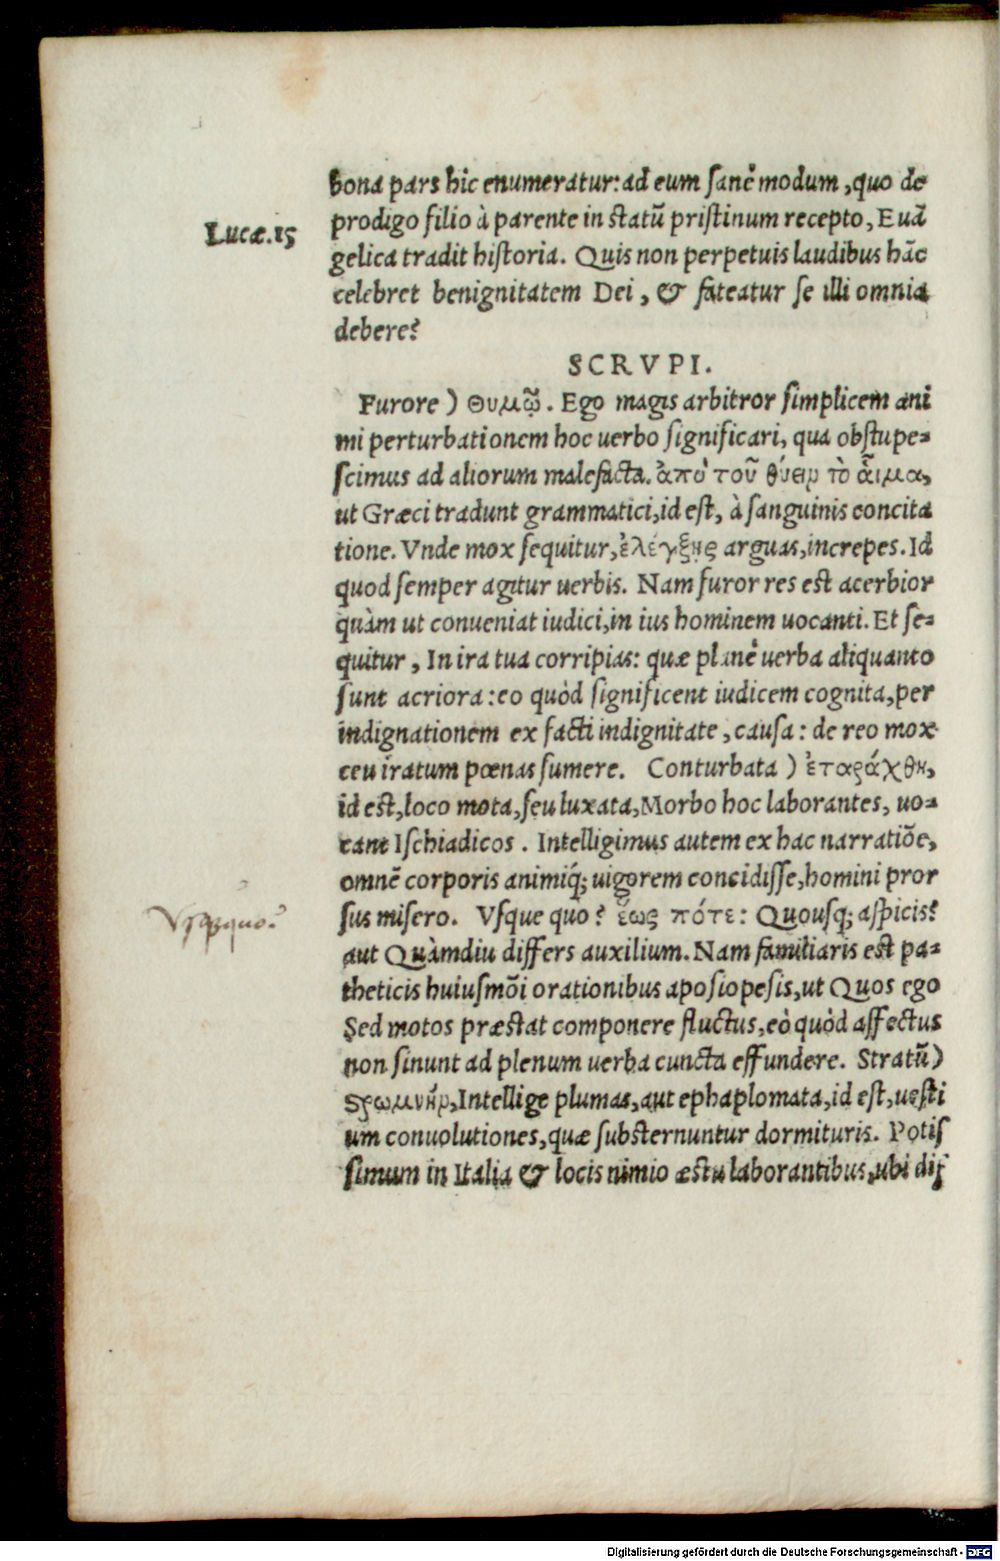 bona pars hîc enumeratur: ad eum sanè modum, quo de
prodigo filio à parente in statũ pristinum recepto, Euã
Lucæ.15
gelica tradit historia. Quis non perpetuis laudibus hãc
celebret benignitatem Dei, & fateatur se illi omnia
debere?
SCRVPI.
Furore) θυμῷ. Ego magis arbitror simplicem ani
mi perturbationem hoc uerbo significari, qua obstupe-
scimus ad aliorum malefacta. ἀπὸ τοῦ θύειν τὸ αἷμα,
ut Græci tradunt grammatici, id est, à sanguinis concita
tione. Vnde mox sequitur, ἐλέγξῃς arguas, increpes. Id
quod semper agitur uerbis. Nam furor res est acerbior
quàm ut conueniat iudici, in ius hominem uocanti. Et se-
quitur, In ira tua corripias: quæ planè uerba aliquanto
sunt acriora: eo quòd significent iudicem cognita, per
indignationem ex facti indignitate, causa: de reo mox
ceu iratum pœnas sumere. Conturbata) ἐταράχθη,
id est, loco mota, seu luxata, Morbo hoc laborantes, uo-
cant Ischiadicos. Intelligimus autem ex hac narratiõe,
omnẽ corporis animiq́; uigorem concidisse, homini pror
sus misero. Vsque quo? ἕως πότε: Quousq; aspicis?
Vsq;quo?
aut Quàmdiu differs auxilium. Nam familiaris est pa-
theticis huiusmõi orationibus aposiopesis, ut Quos ego
Sed motos præstat componere fluctus, eò quòd affectus
non sinunt ad plenum uerba cuncta effundere. Stratũ)
ϛρωμνὴν, Intellige plumas, aut ephaplomata, id est, uesti
um conuolutiones, quæ substernuntur dormituris. Potis
simum in Italia & locis nimio æstu laborantibus, ubi dif
Digitalisierung gefördert durch die Deutsche Forschungsgemeinschaft - DFG